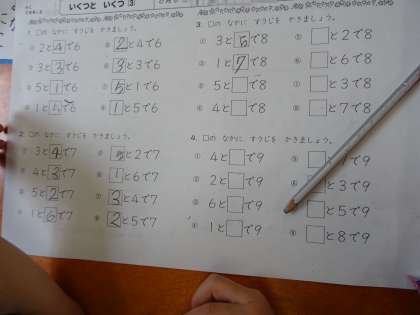 いくつと いくつ ③
1. □の なかに すうじを かきましょう。
① 2と4で6
⑤ 2と4で6
② 3と3で6
⑥ 3と3で6
③ 5と1で6
⑦ 5と1で6
④ 1と5で6
⑧ 1と5で6
2. □の なかに すうじを かきましょう。
① 3と4で7
⑤ 5と2で7
② 4と3で7
⑥ 1と6で7
③ 5と2で7
⑦ 3と4で7
④ 1と6で7
⑧ 2と5で7
3. □の なかに すうじを かきましょう。
① 3と5で8
⑤ □と2で8
② 1と7で8
⑥ □と6で8
③ 5と□で8
⑦ □と3で8
④ 4と□で8
⑧ □と7で8
4. □の なかに すうじを かきましょう。
① 4と□で9
⑤ □と で9
② 2と□で9
⑥ と3で9
③ 6と□で9
□と5で9
④ 1と□で9
⑧ □と8で9